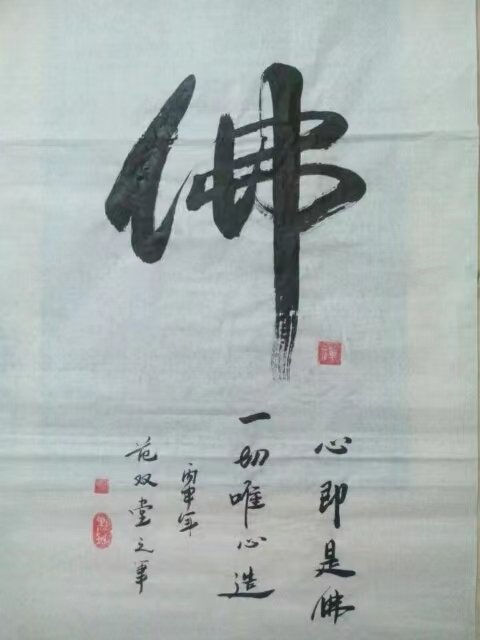 佛
心即是佛
一切唯心造
丙申年
范双堂之笔
禅